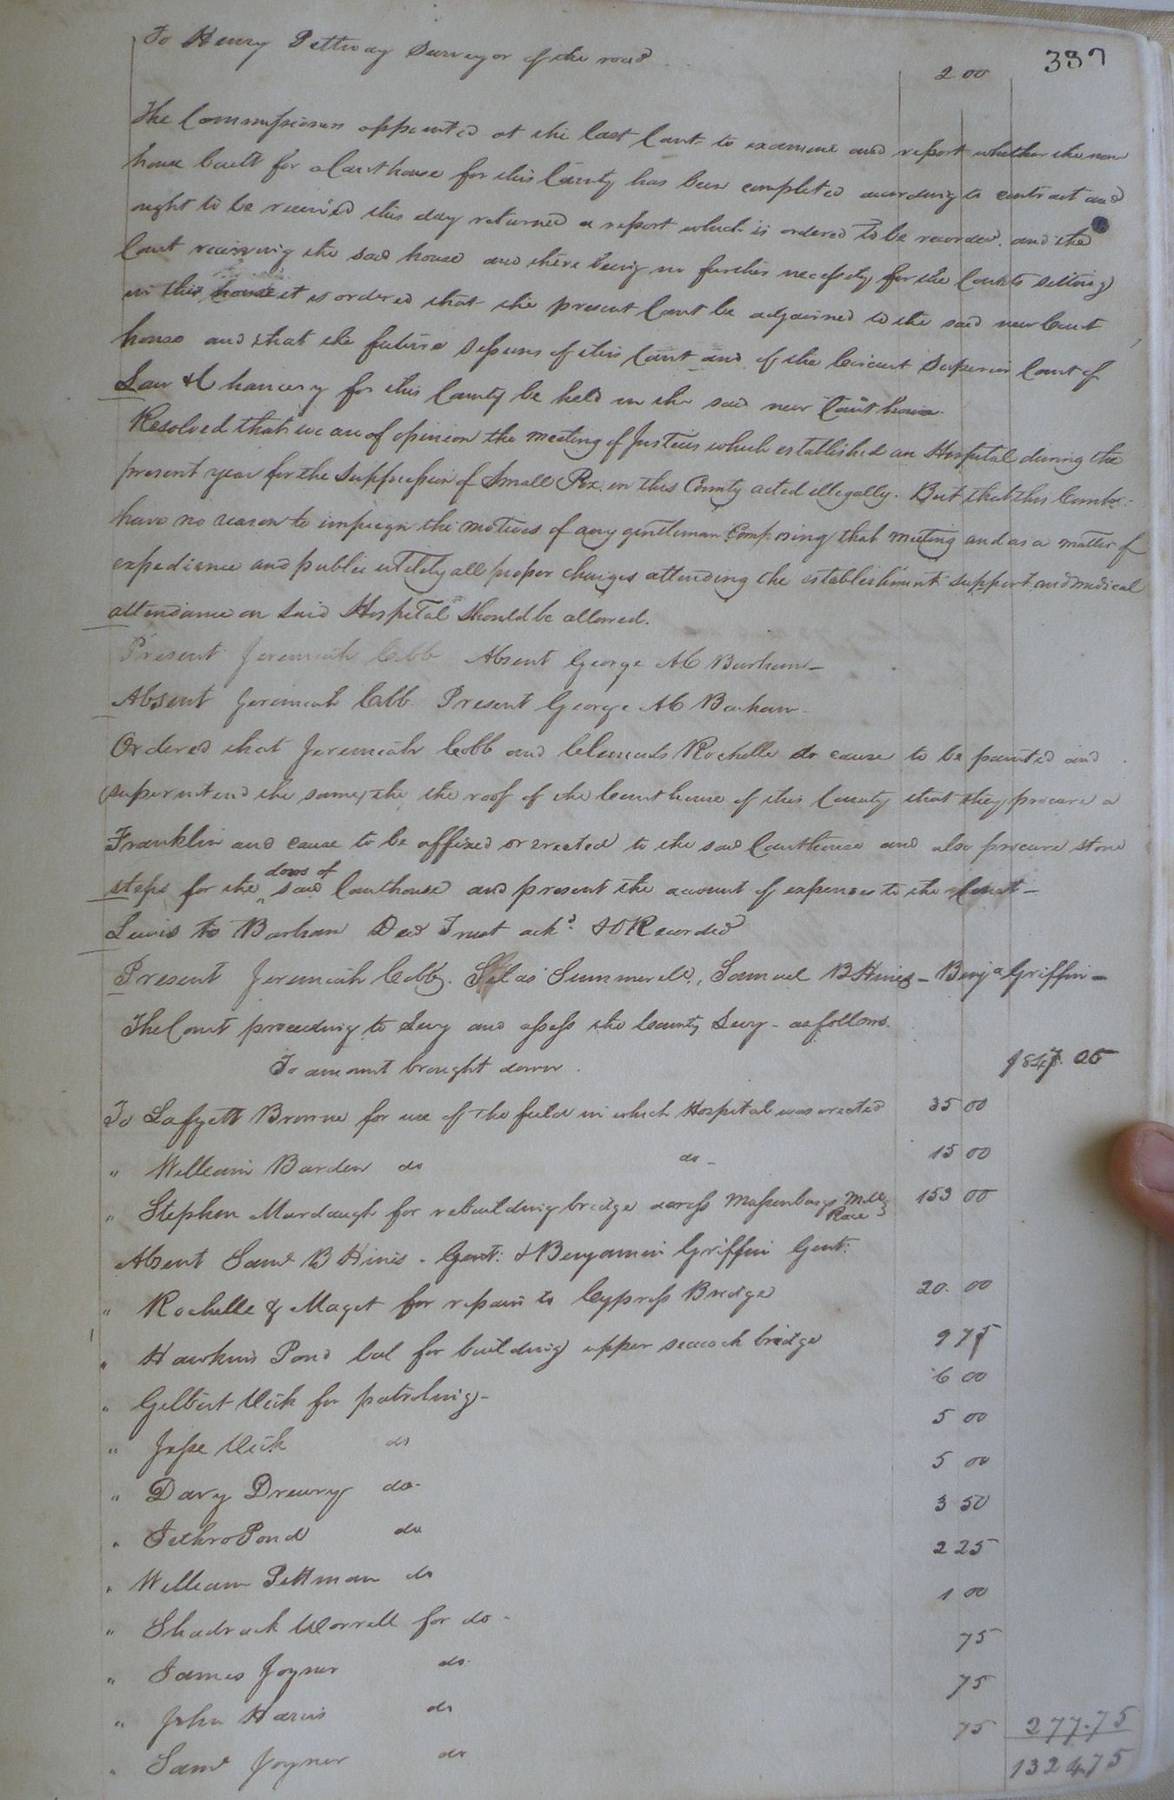 337
To Henry Pettway Surveyor of the road 2 00
The Commissioners appointed at the last Court to examine and report whether the new
house built for a Courthouse for this County has been completed according to contract and
ought to be received this day returned a report which is ordered to be recorded. and the
Court receiving the said house and there being no further necessity for the Courts sitting
in this house it is ordered that the present Court be adjourned to the said new Court
house and that the future Sessions of this Court and of the Circuit Superior Court of
Law & Chancery for this County be held in the said new Courthouse.
Resolved that we are of opinion the meeting of Justices which established an Hospital during the
present year for the suppression of Small Pox in this County acted illegally. But that this Court
have no reason to impugn the motives of any gentleman Composing that meeting and as a matter of
expedience and public utility all proper charges attending the establishment support and medical
attendance on said Hospital should be allowed.
Present Jeremiah Cobb Absent George A C Barham
Absent Jeremiah Cobb. Present George A C Barham
Ordered that Jeremiah Cobb and Clements Rochelle do cause to be painted and
(superintend the same) the the roof of the Courthouse of this County that they procure a
Franklin and cause to be affixed or erected to the said Courthouse and also procure stone
steps for the doors of said Courthouse and present the account of expenses to the Court
Lewis to Barham Deed Trust ackd. & O Recorded
Present Jeremiah Cobb, Silas Summerell, Samuel B Hines - Benja Griffin
The Court proceeding to Levy and assess the County Levy - as follows
To amount brought down 1847 05
To Lafyett Browne for use of the field in which Hospital was erected 35 00
" William Barden do do 15 00
" Stephen Murdaugh for rebuilding bridge across Massenburgs Mill Race 153 00
Absent Saml B Hines - Gent: & Benjamin Griffin Gent:
" Rochelle & Maget for repairs to Cypress Bridge 20. 00
" Hawkins Pond bal for building upper seacock bridge 9 75
" Gilbert Vick for patroling 6 00
" Jesse Vick do 5 00
" Davy Drewry do 5 00
" Jethro Pond do 3 50
" William Pittman do 2 25
" Shadrack Worrell for do 1 00
" James Joyner do 75
" John Haris do 75
" Saml Joyner do 75 277.75
1324.75